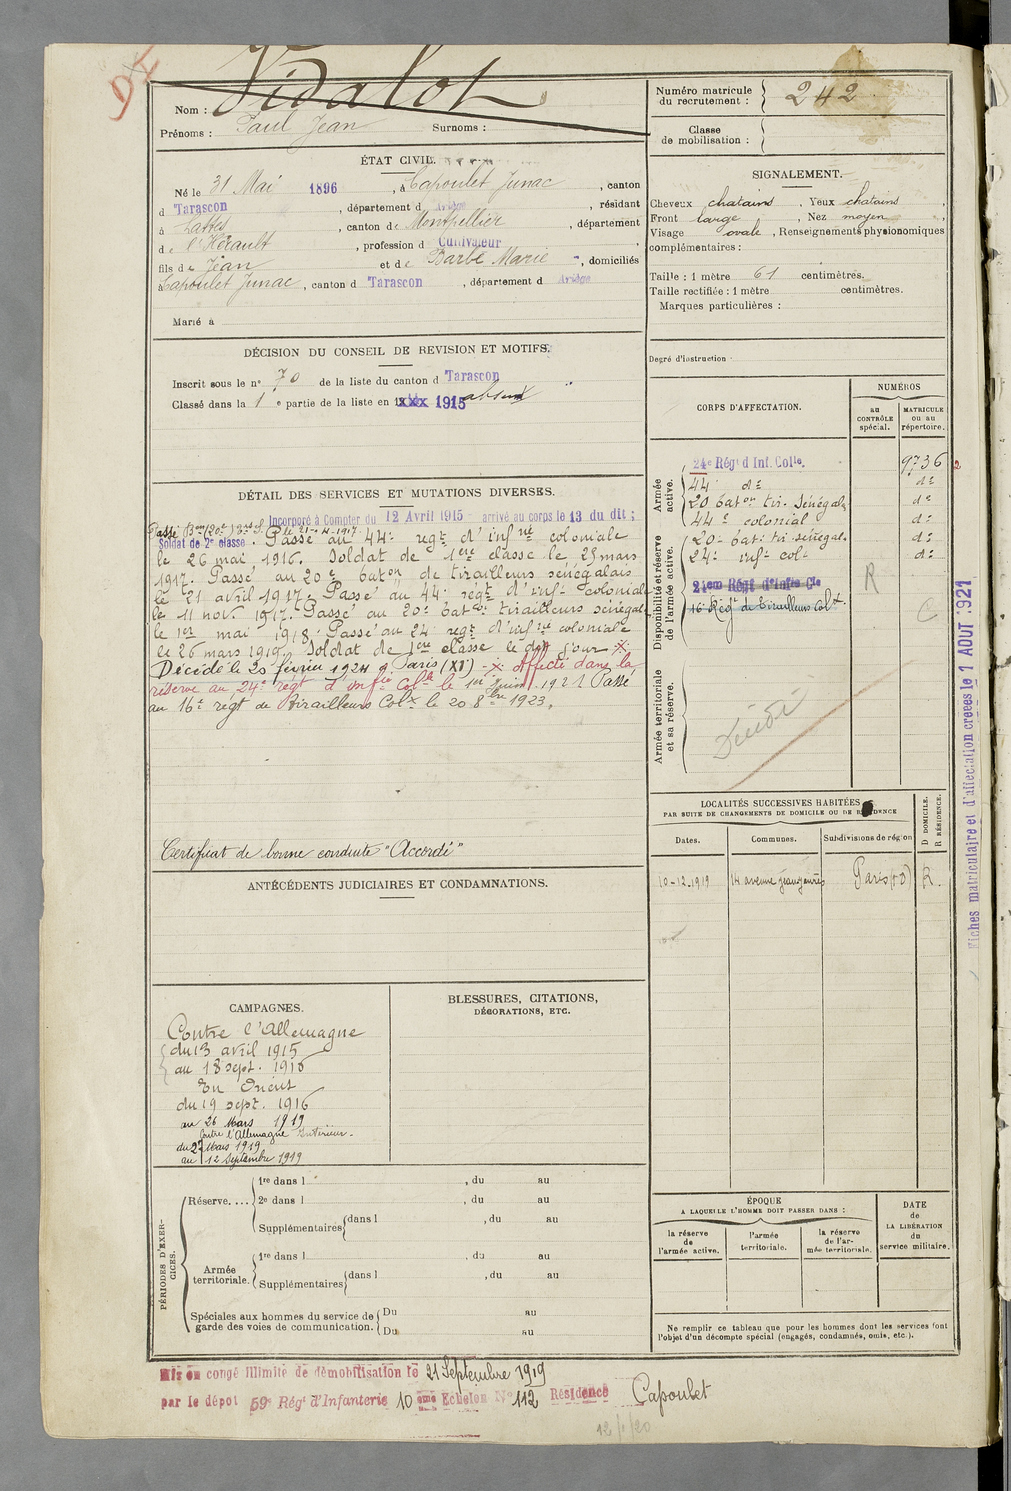 DE
Nom : Vidalot
Prénoms : Paul Jean Surnoms :
ÉTAT CIVIL.
Né le 31 Mai 1896, à Capoulet Junac, canton
d Tarascon, département d Ariège, résidant
à Lattes, canton de Montpellier, département
de l'Hérault, profession d Cultivateur,
fils de Jean et de Barbe Marie, domiciliés
à Capoulet Junac, canton d Tarascon, département d Ariège
Marié à
DÉCISION DU CONSEIL DE REVISION ET MOTIFS.
Inscrit sous le n° 70 de la liste du canton d Tarascon
Classé dans la 1 e partie de la liste en 1915 absent
DÉTAIL DES SERVICES ET MUTATIONS DIVERSES.
Incorporé à Compter du 12 Avril 1915 arrivé au corps le 13 du dit ;
Soldat de 2e classe. Passé au 44e regt d'infrie coloniale
le 26 mai 1916. Soldat de 1ere classe le 25 mars
1917. Passé au 20e baton de tirailleurs sénégalais
le 21 avril 1917. Passé au 44e régt d'infie coloniale
le 11 nov. 1917. Passé au 20e bat on tirailleurs sénégal.
le 1er mai 1918. Passé au 24e regt d'infrie coloniale
le 26 mars 1919. Soldat de 1ere classe le dit jour -x-
Décédé le 25 février 1924 à Paris (XI) -x- Affecté dans la
réserve au 24e régt d'infie Cole le 1er Juin 1921 Passé
au 16e régt de tirailleurs Colx le 20 8bre 1923.
Certificat de bonne conduite "Accordé"
ANTÉCÉDENTS JUDICIAIRES ET CONDAMNATIONS.
CAMPAGNES.
Contre l'Allemagne
du 13 avril 1915
au 18 sept. 1916
En Orient
du 19 sept. 1916
au 26 Mars 1919
Contre l'Allemagne Intérieur.
du 27 Mars 1919
au 12 Septembre 1919
BLESSURES, CITATIONS,
DÉCORATIONS, ETC.
PÉRIODES D'EXERCICES.
Réserve....
1re dans l , du au
2e dans l , du au
Supplémentaires dans l , du au
Armée territoriale.
1re dans l , du au
Supplémentaires dans l , du au
Spéciales aux hommes du service de Du au
garde des voies de communication. Du au
Mis en congé illimité de démobilisation le 21 Septembre 1919
par le dépôt 59e Régt d'Infanterie 10 ème Echelon N° 112 Résidence Capoulet
12/1/20
Numéro matricule
du recrutement : 242
Classe
de mobilisation :
SIGNALEMENT.
Cheveux chatains, Yeux chatains,
Front large, Nez moyen,
Visage ovale, Renseignements physionomiques
complémentaires :
Taille : 1 mètre 61 centimètres.
Taille rectifiée : 1 mètre centimètres.
Marques particulières :
Degré d'instruction
CORPS D'AFFECTATION.
NUMÉROS
au
CONTRÔLE
spécial.
MATRICULE
ou au
répertoire.
Armée
active.
24e Régt d Inf. Colle. 9736
44 de de
20 baton tir. Sénégal. de
44e colonial de
Disponibilité et réserve
de l'armée active.
20e bat. tir. sénégal. de
24e infie col. de
24em Régt d'Infie Cle
16e Régt de Tirailleurs Colx.
R
C
Armée territoriale
et sa réserve.
Décédé
LOCALITÉS SUCCESSIVES HABITÉES
PAR SUITE DE CHANGEMENTS DE DOMICILE OU DE RÉSIDENCE
Dates. Communes. Subdivisions de région
D DOMICILE.
R RÉSIDENCE.
10-12-1919 14 avenue Jean Jaurès Paris R.
ÉPOQUE
A LAQUELLE L'HOMME DOIT PASSER DANS :
la réserve
de
l'armée active.
l'armée
territoriale.
la réserve
de l'ar-
mée territoriale.
DATE
de
LA LIBÉRATION
du
service militaire.
Ne remplir ce tableau que pour les hommes dont les services font
l'objet d'un décompte spécial (engagés, condamnés, omis, etc.).
Fiches matriculaire et d'affectation créées le 1 AOUT 1921